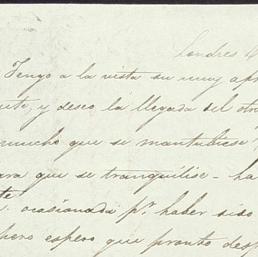 Londres
Tengo a la vista su muy
y deseo la llegada del
mucho que se mantubiese
que se tranquilise - ha
te
ocasionada pr. haber sido
pero espero que pronto